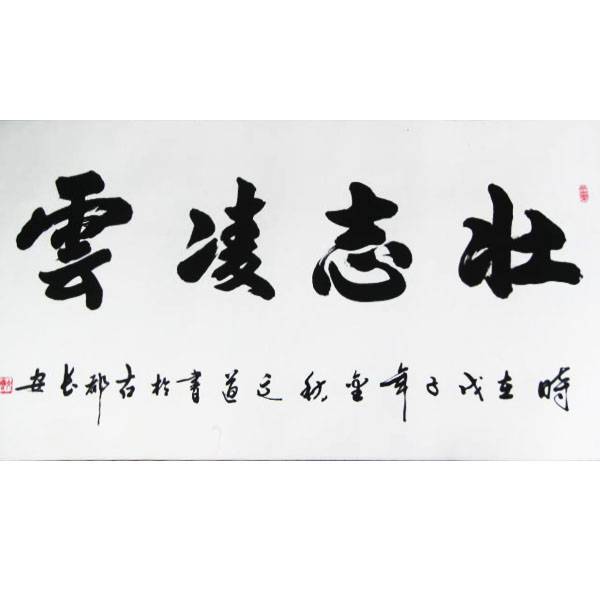 壮志凌雲
時在戊子年金秋之道書於古都長安